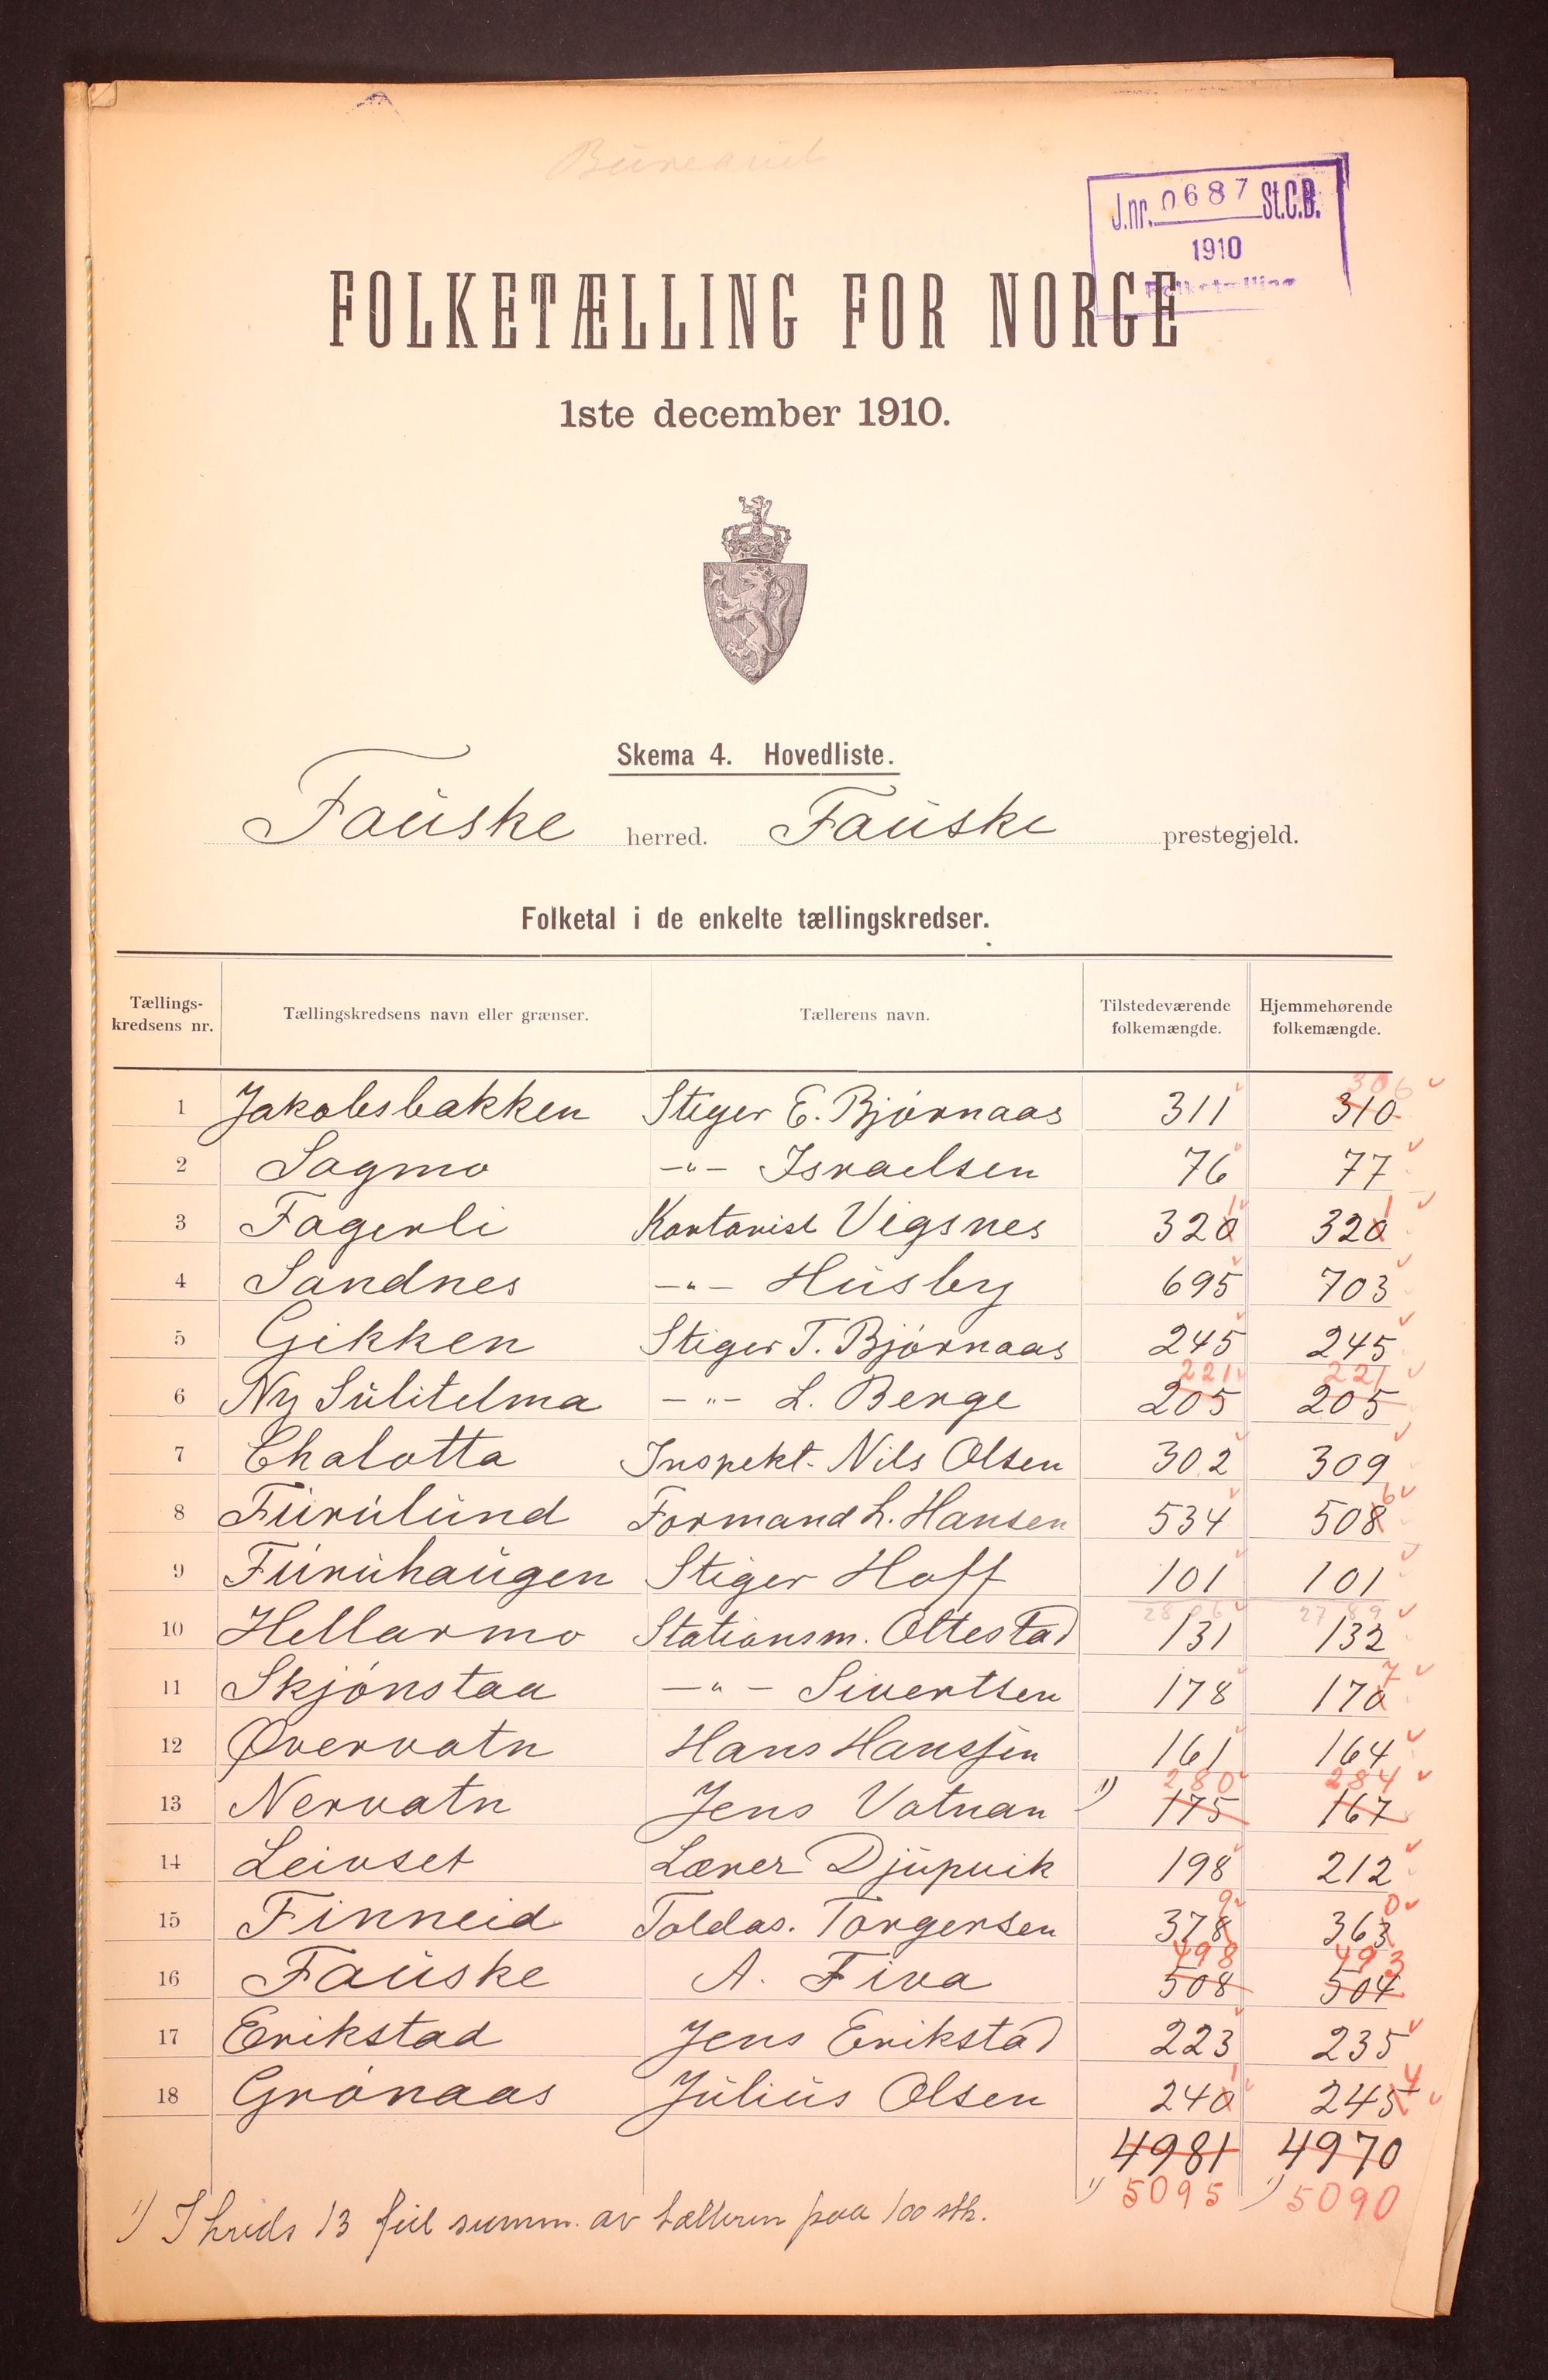 Bureauet
J.nr. 0687 St.C.B.
1910
Folketælling
FOLKETÆLLING FOR NORGE
1ste december 1910.
Skema 4. Hovedliste.
Fauske herred. Fauske prestegjeld.
Folketal i de enkelte tællingskredser.
Tællings-kredsens nr. Tællingskredsens navn eller grænser. Tællerens navn. Tilstedeværende folkemængde. Hjemmehørende folkemængde.
306
1 Jakobsbakken Stiger E. Bjørnaas 311 310
2 Sagmo -"- Israelsen 76 77
1 1
3 Fagerli Kontorist Vigsnes 320 320
4 Sandnes -"- Husby 695 703
5 Gikken Stiger T. Bjørnaas 245 245
221 221
6 Ny Sulitelma -"- L. Berge 205 205
7 Chalotta Inspekt. Nils Olsen 302 309
6
8 Furulund Formand L. Hansen 534 508
9 Furuhaugen Stiger Hoff 101 101
2806 2789
10 Hellarmo Stationsm. Oltestad 131 132
7
11 Skjønstaa -"- Sivertsen 178 170
12 Øvervatn Hans Hanssen 161 164
280 284
13 Nervatn Jens Vatnan 1) 175 167
14 Leivset Lærer Djupvik 198 212
9 0
15 Finneid Toldas. Torgersen 378 363
498 493
16 Fauske A. Fiva 508 504
17 Erikstad Jens Erikstad 223 235
1 4
18 Grønaas Julius Olsen 240 245
4981 4970
1) 5095 1) 5090
1) I kreds 13 feil summ. av tælleren paa 100 stk.